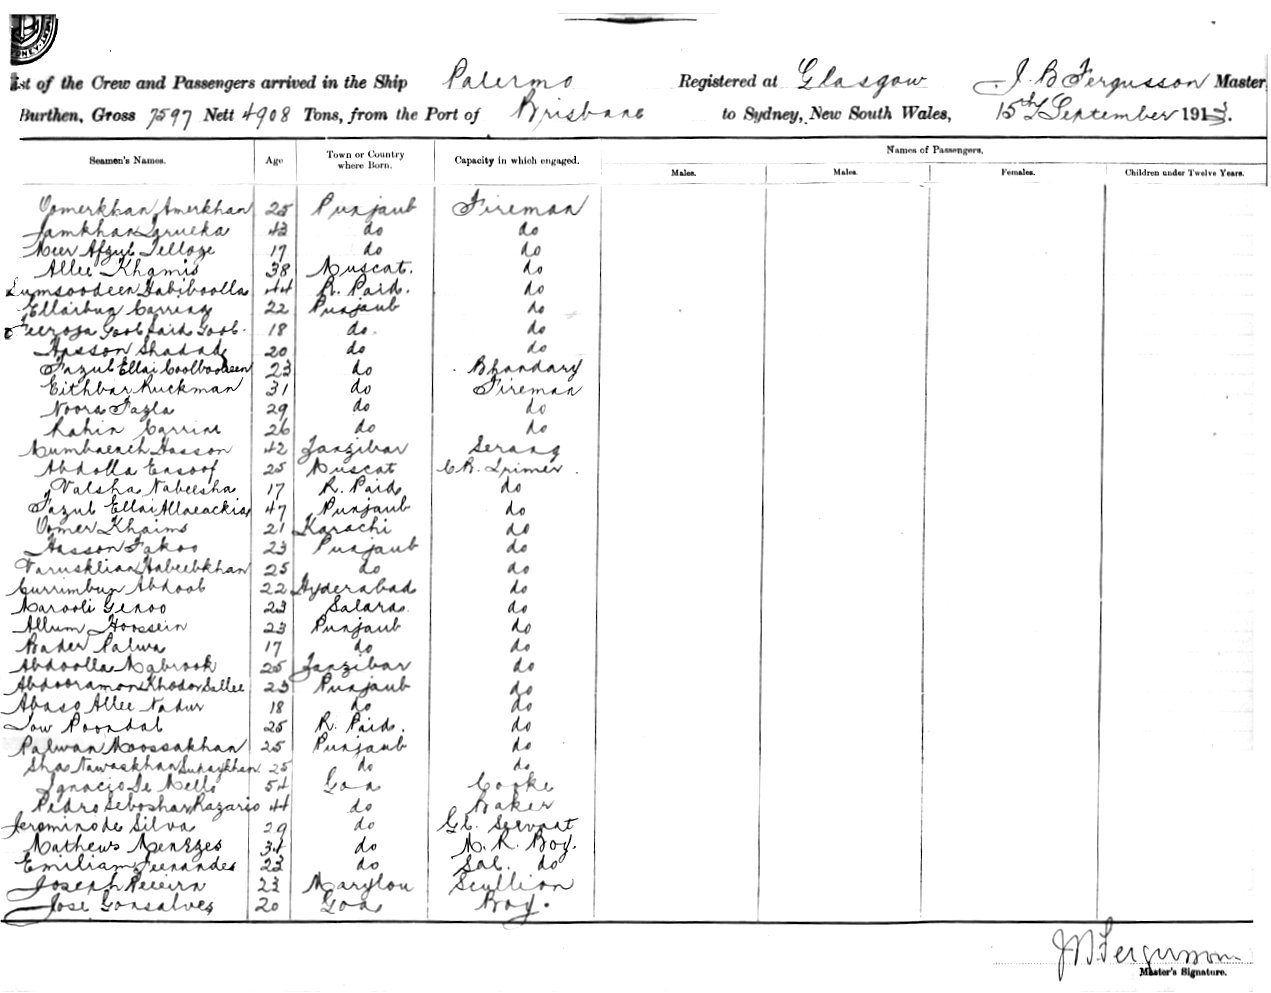 List of the Crew and Passengers arrived in the Ship Palermo Registered at Glasgow J. B Fergusson Master
Burthen, Gross 7597 Nett 4908 Tons, from the Port of Brisbane to Sydney, New South Wales, 15th September 1913.
Seamen's Names. Age Town or Country where Born. Capacity in which engaged. Names of Passengers.
Males. Males. Females. Children under Twelve Years.
Oomerkhan Amerkhan 25 Punjaub Fireman
Jamkhan 43 do do
Meer Afzul 17 do do
Allee Khamis 38 Muscat. do
Habiboolla 44 R. Paid. do
22 Punjaub do
Feeroza Goolsaid Gool. 18 do do
Hasson Shadad 20 do do
Fazul Ellai Coolboodeen 23 do Bhandary
Eithbar Ruckman 31 do Fireman
Noora Fazla 29 do do
26 do do
Hasson 42 Zanzibar Serang
Abdolla Ensoof 25 Muscat
Valsha Nabeesha 17 R. Paid do
Fazul Ellai 47 Punjaub do
Oomer Khaims 21 Karachi do
Hasson Fakoo 23 Punjaub do
Habeebkhan 25 do do
Currimbux Abdool 22 Hyderabad do
Marooli Genoo 23 Salara do
Allum Hoossein 23 Punjaub do
Bader Palwa 17 do do
Abdoolla Mabrook 25 Zanzibar do
Abdooramon Khodor Sallee 23 Punjaub do
Abaso Allee Nadur 18 do do
Poondal 25 R. Paid. do
Palwan Moossakhan 25 Punjaub do
Sha Nawaskhan 25 do do
Ignacio De Mello 54 Goa Cooke
Pedro Razario 44 do Baker
Jeromino de Silva 29 do Gl. Servant
Mathews Menezes 34 do M. R. Boy.
Emiliam Fernandes 23 do Sal. do
Joseph Pereira 23 Scullion
Jose Gonsalves 20 Goa Boy.
J B Fergusson
Master's Signature.